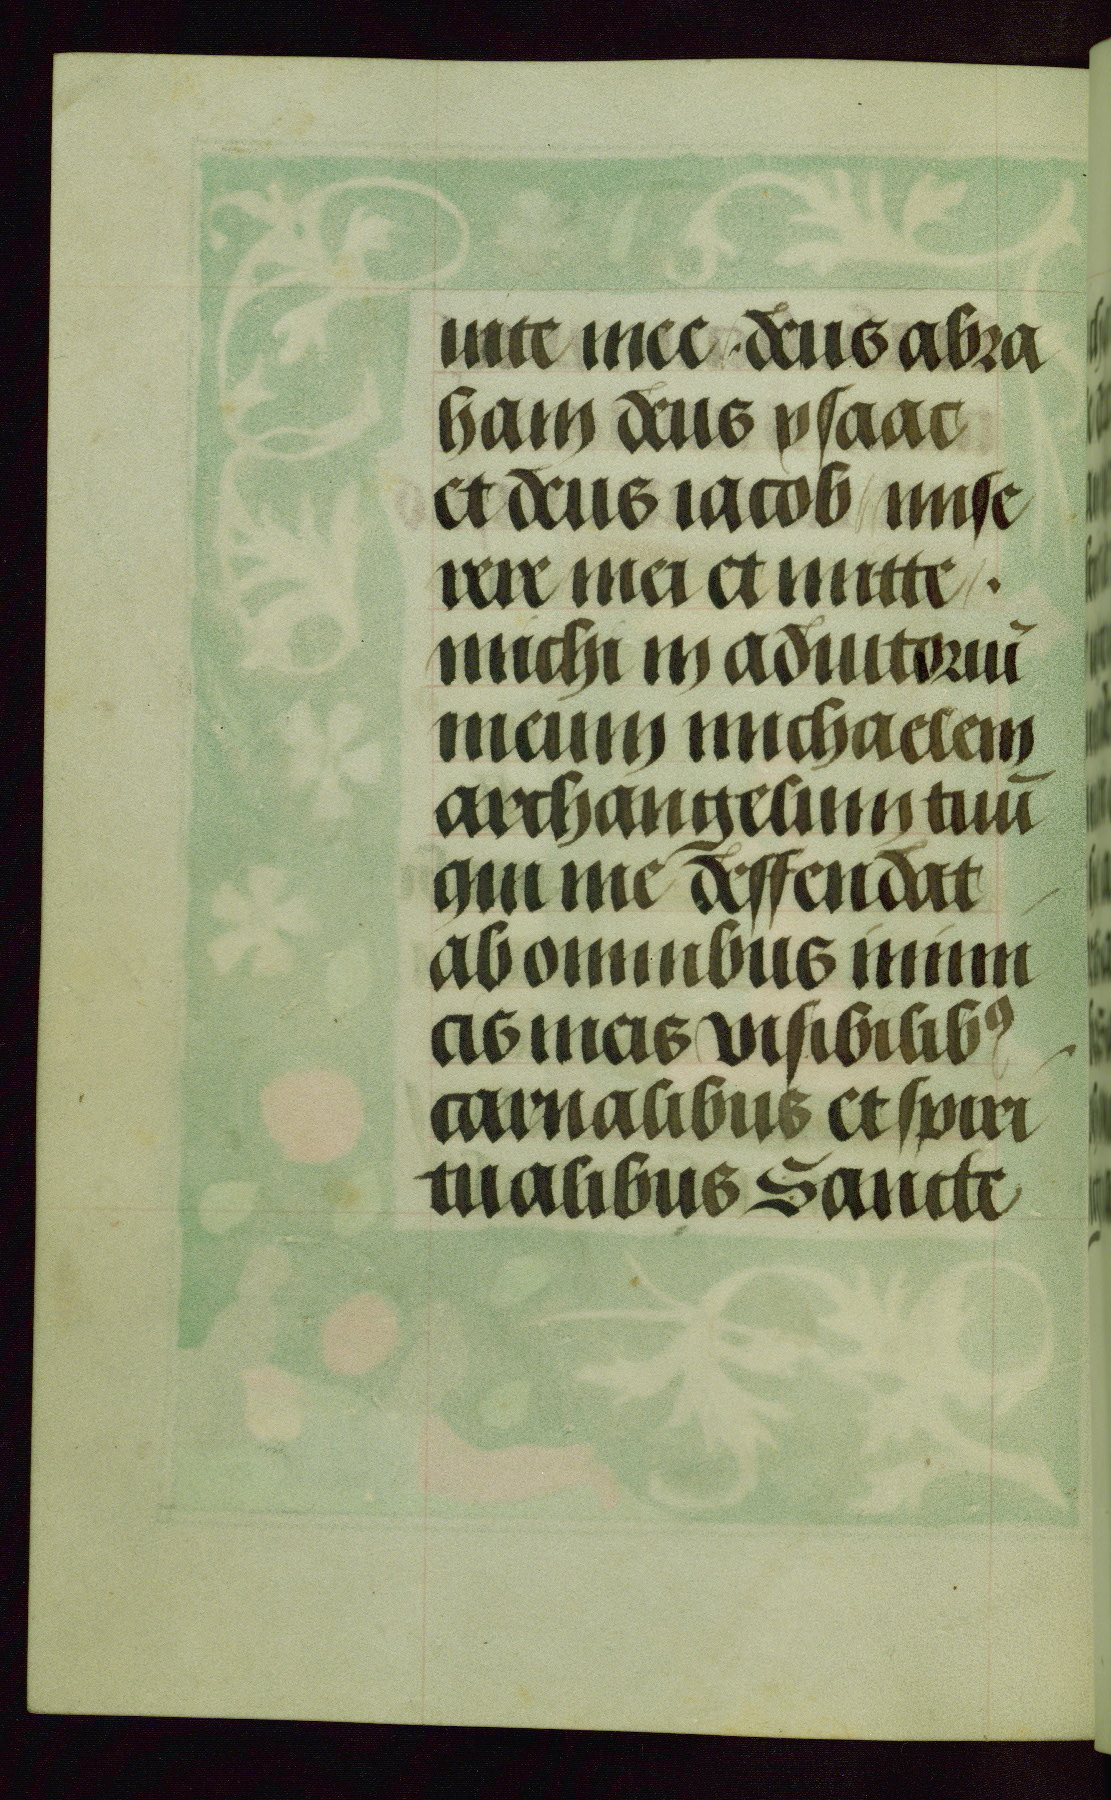 uite mee · deus abra
ham deus ysaac
et deus iacob // mise
rere mei et mitte // ·
michi in adiutoriū
meum michaelem
archangelum tuū
qui me deffendat
ab omnibus inimi
cis meis visibilibꝰ
carnalibus et spiri
tualibus Sancte